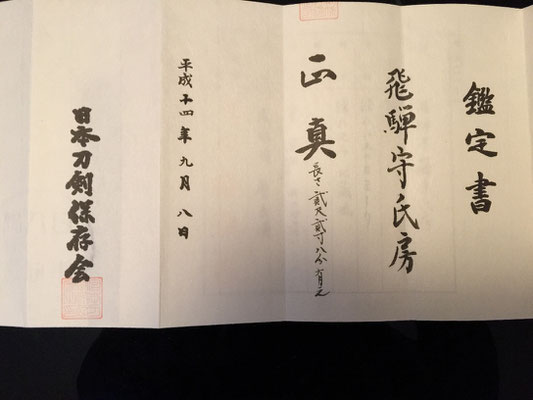 鑑定書
飛騨守氏房
正真
長さ貳尺貳寸八分有之
平成十四年九月八日
日本刀剣保存会